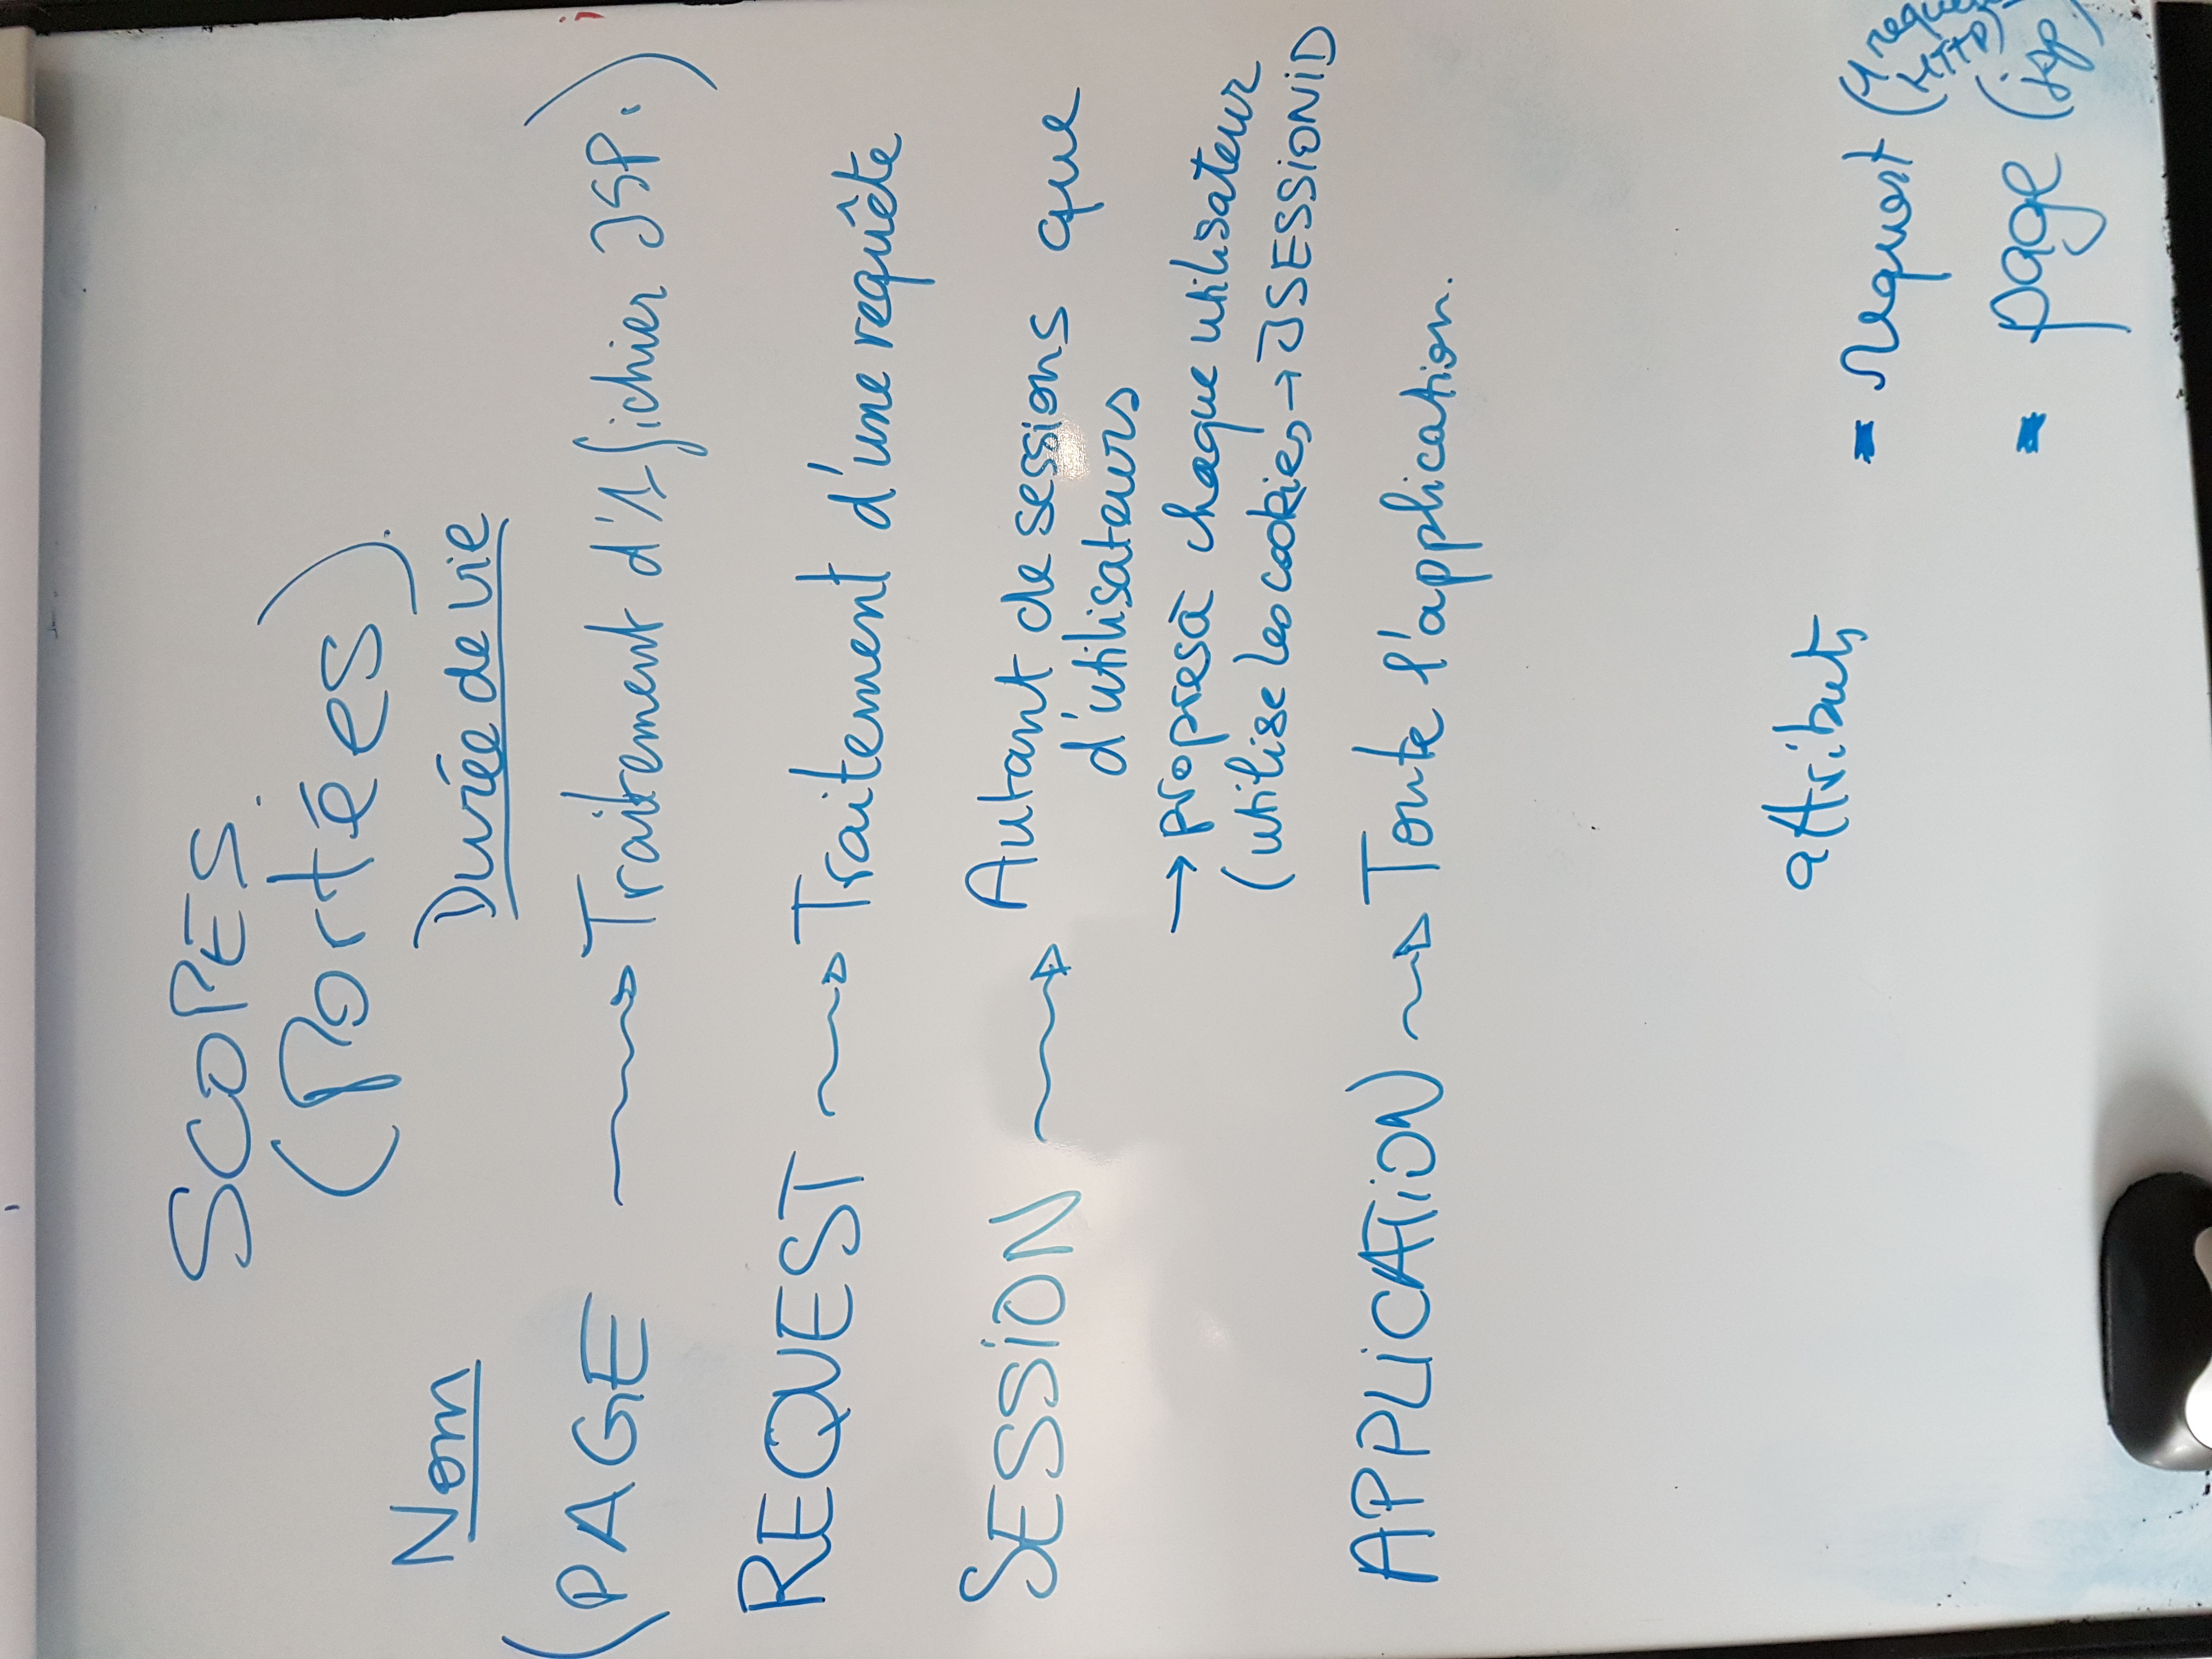 SCOPES.
(Portées).
Nom Durée de vie
(PAGE → Traitement d'1 fichier JSP.)
REQUEST → Traitement d'une requête
SESSION → Autant de sessions que
d'utilisateurs
→ propres à chaque utilisateur
(utilise les cookies → JSESSIONID
APPLICATION → Toute l'application.
attributs
- request (1 requ
HTTP)
- page (jsp)